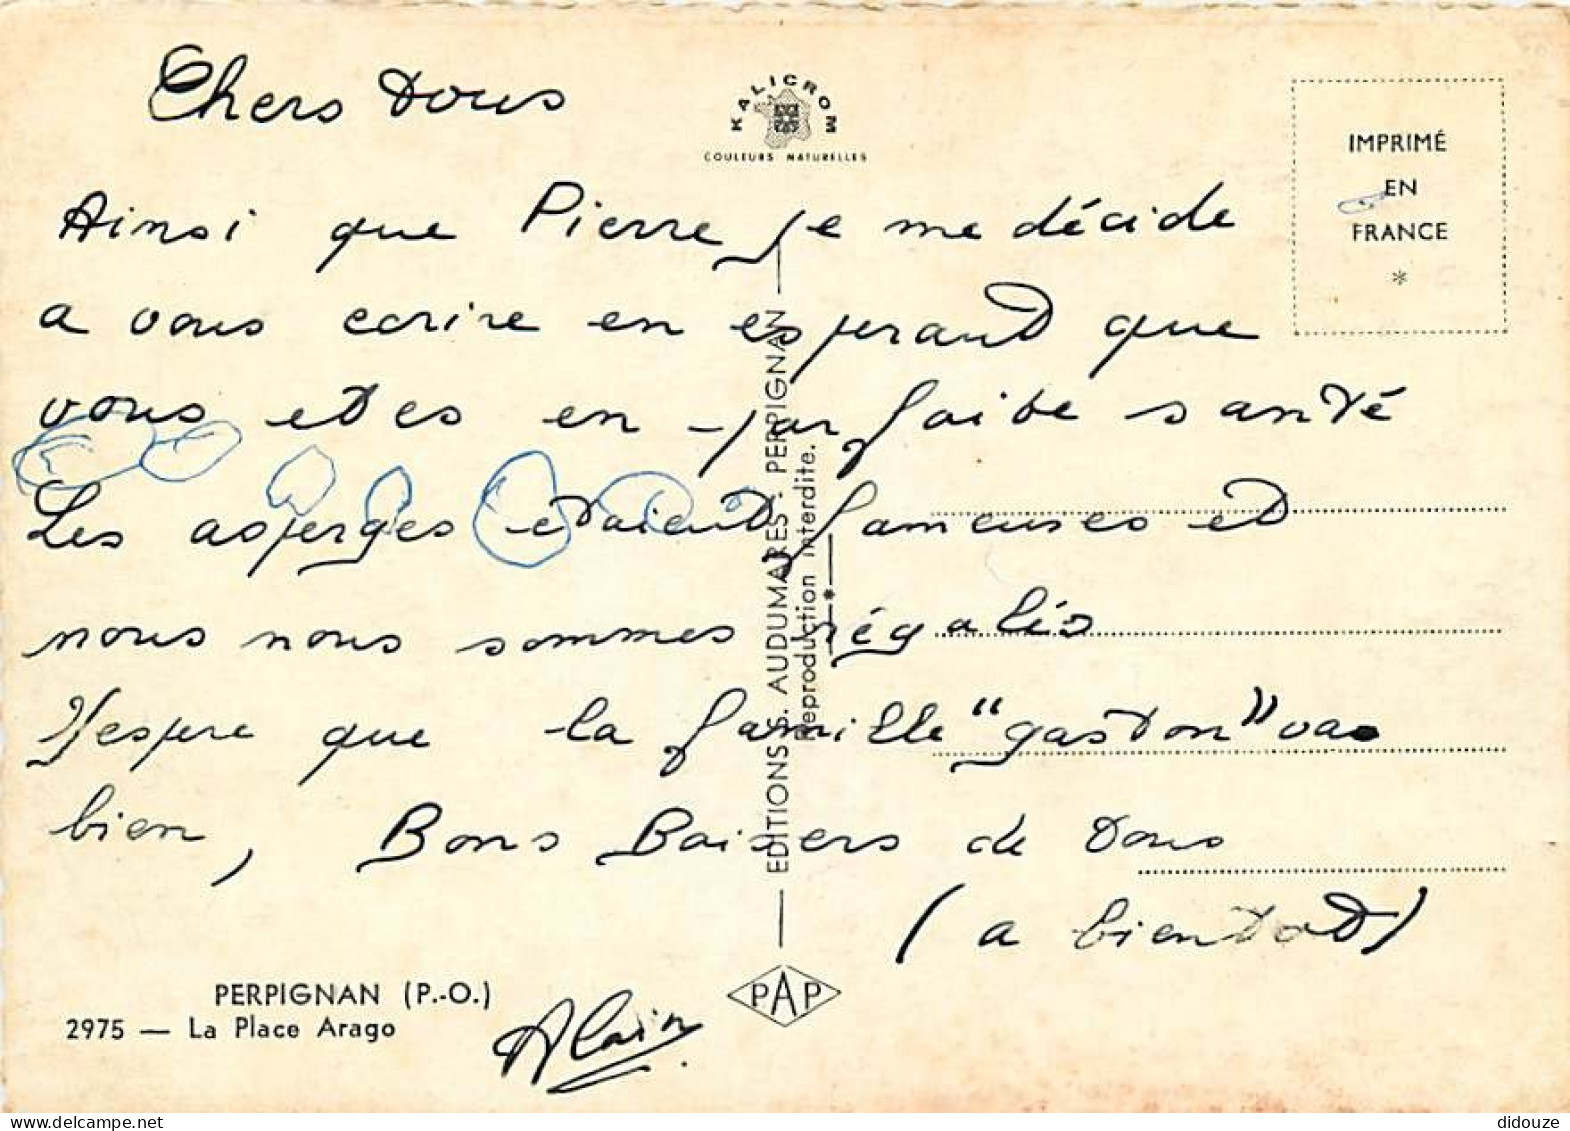 Chers tous
KALICROM
COULEURS NATURELLES
IMPRIMÉ
EN
FRANCE
*
Ainsi que Pierre je me décide
a vous ecrire en esperant que
vous etes en parfaite santé
Les asperges etaient fameuses et
nous nous sommes régalés
J'espere que la famille "gaston" vas
bien, Bons Baisers de tous
(a bientot)
Alain
EDITIONS S. AUDUMARES - PERPIGNAN
Reproduction interdite.
*
PERPIGNAN (P.-O.)
2975 — La Place Arago
PAP
www.delcampe.net
didouze